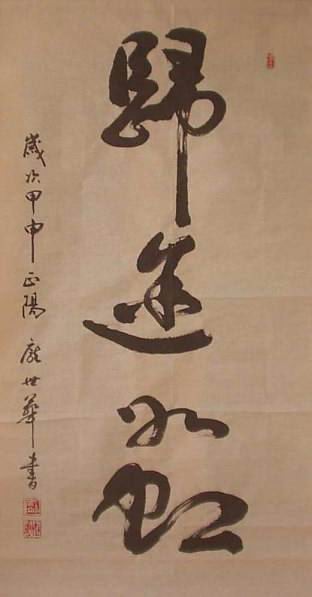 歸途如虹
歲次甲申正陽 龐世華書